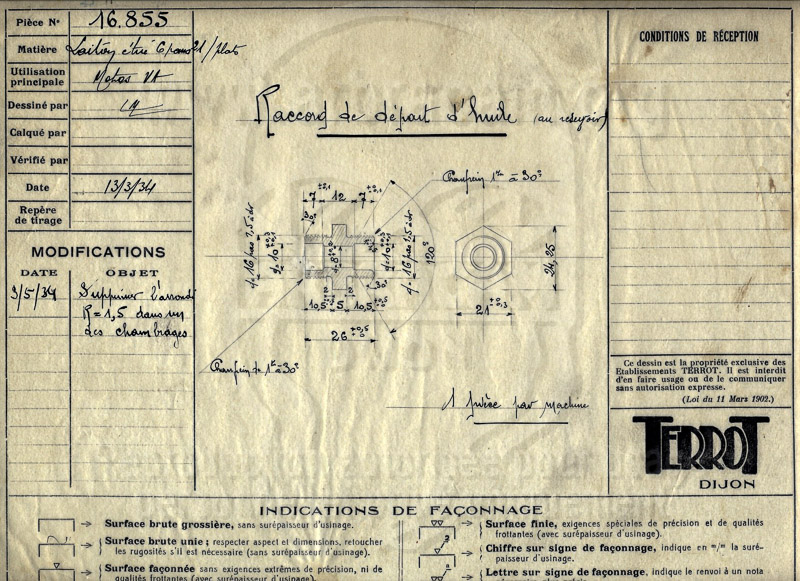 Pièce N° 16.855
Matière Laiton étiré 6 pans 21 / plats
Utilisation principale Motos VA
Dessiné par
Calqué par
Vérifié par
Date 13/3/34
Repère de tirage
MODIFICATIONS
DATE OBJET
3/5/34 Supprimer l'arrondi
R=1,5 dans un
des chambrages
Raccord de départ d'huile (au réservoir)
Chanfrein 1 à 30°
7 12 7
30°
120°
26
10,5 5 10,5
21
24,25
Chanfrein de 1 à 30°
1 pièce par machine
CONDITIONS DE RÉCEPTION
Ce dessin est la propriété exclusive des
Etablissements TERROT. Il est interdit
d'en faire usage ou de le communiquer
sans autorisation expresse.
(Loi du 11 Mars 1902.)
TERROT
DIJON
INDICATIONS DE FAÇONNAGE
Surface brute grossière, sans surépaisseur d'usinage.
Surface brute unie ; respecter aspect et dimensions, retoucher
les rugosités s'il est nécessaire (sans surépaisseur d'usinage).
Surface façonnée sans exigences extrêmes de précision, ni de
qualités frottantes (avec surépaisseur d'usinage).
Surface finie, exigences spéciales de précision et de qualités
frottantes (avec surépaisseur d'usinage).
Chiffre sur signe de façonnage, indique en "/" la suré-
paisseur d'usinage.
Lettre sur signe de façonnage, indique le renvoi à un nota